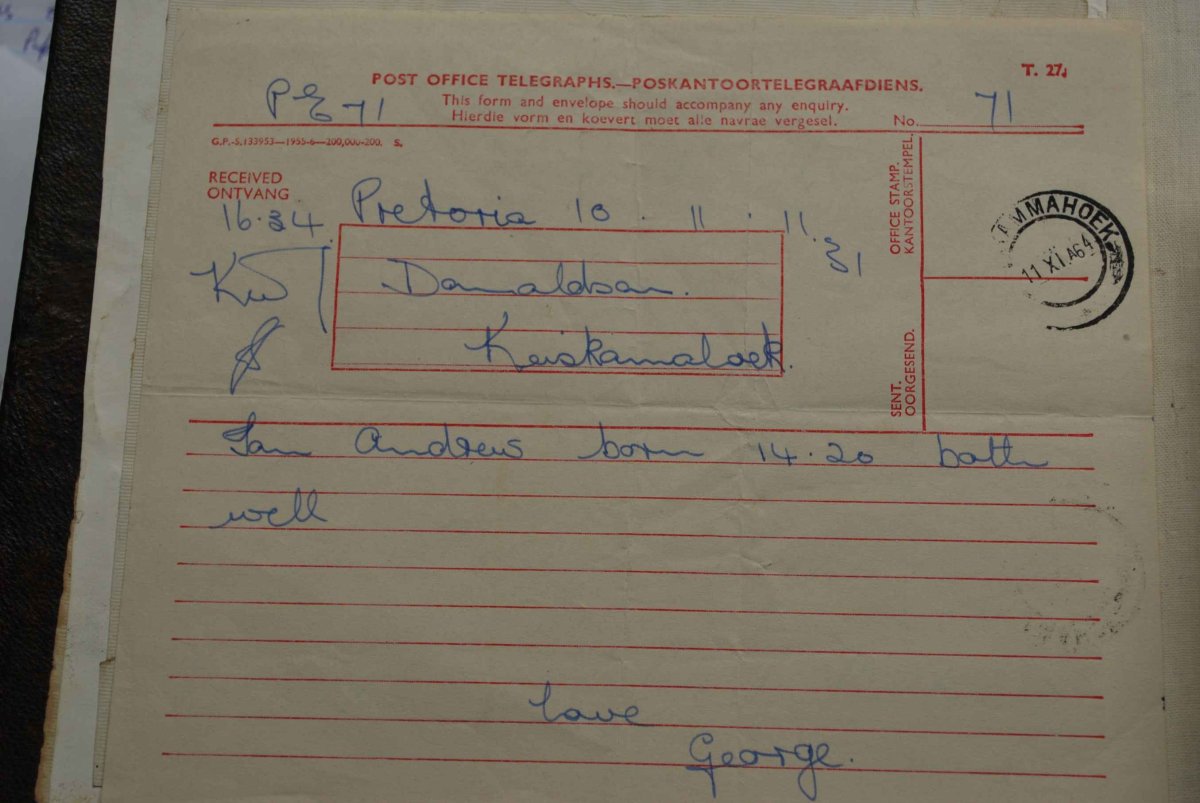 T. 27.
POST OFFICE TELEGRAPHS.—POSKANTOORTELEGRAAFDIENS.
This form and envelope should accompany any enquiry.
Hierdie vorm en koevert moet alle navrae vergesel.
PE 71
No. 71
G.P.-S.133953—1955-6—200,000-200. S.
RECEIVED
ONTVANG
OFFICE STAMP.
KANTOORSTEMPEL.
16.34 Pretoria 10 . 11 . 11.
31
MMAHOEK
11 XI 64
Donaldson.
Keiskamahoek.
SENT.
OORGESEND.
Ian Andrew born 14.20 both
well
Love
George.